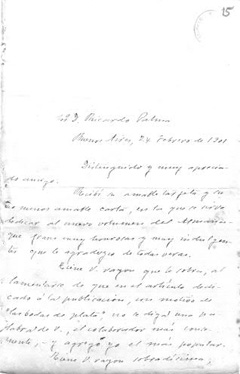 15
D. Ricardo Palma
Buenos Aires, 24 Febrero de 1901
Distinguido y muy aprecia-
do amigo.
Recibí su amable tarjeta y su
no menos amable carta, en la que se sirve
dedicar al nuevo volumen del Almanaque
frases muy honrosas y muy indulgen-
tes que le agradezco de todas veras.
Tiene V. razon que le sobra, al
lamentarse de que en el artículo dedi-
cado á la publicación, con motivo de
"las bodas de plata" no se diga una pa-
labra de V., el colaborador más cons-
ecuente, y agrego yo el más popular.
Tiene V. razon sobradísima,